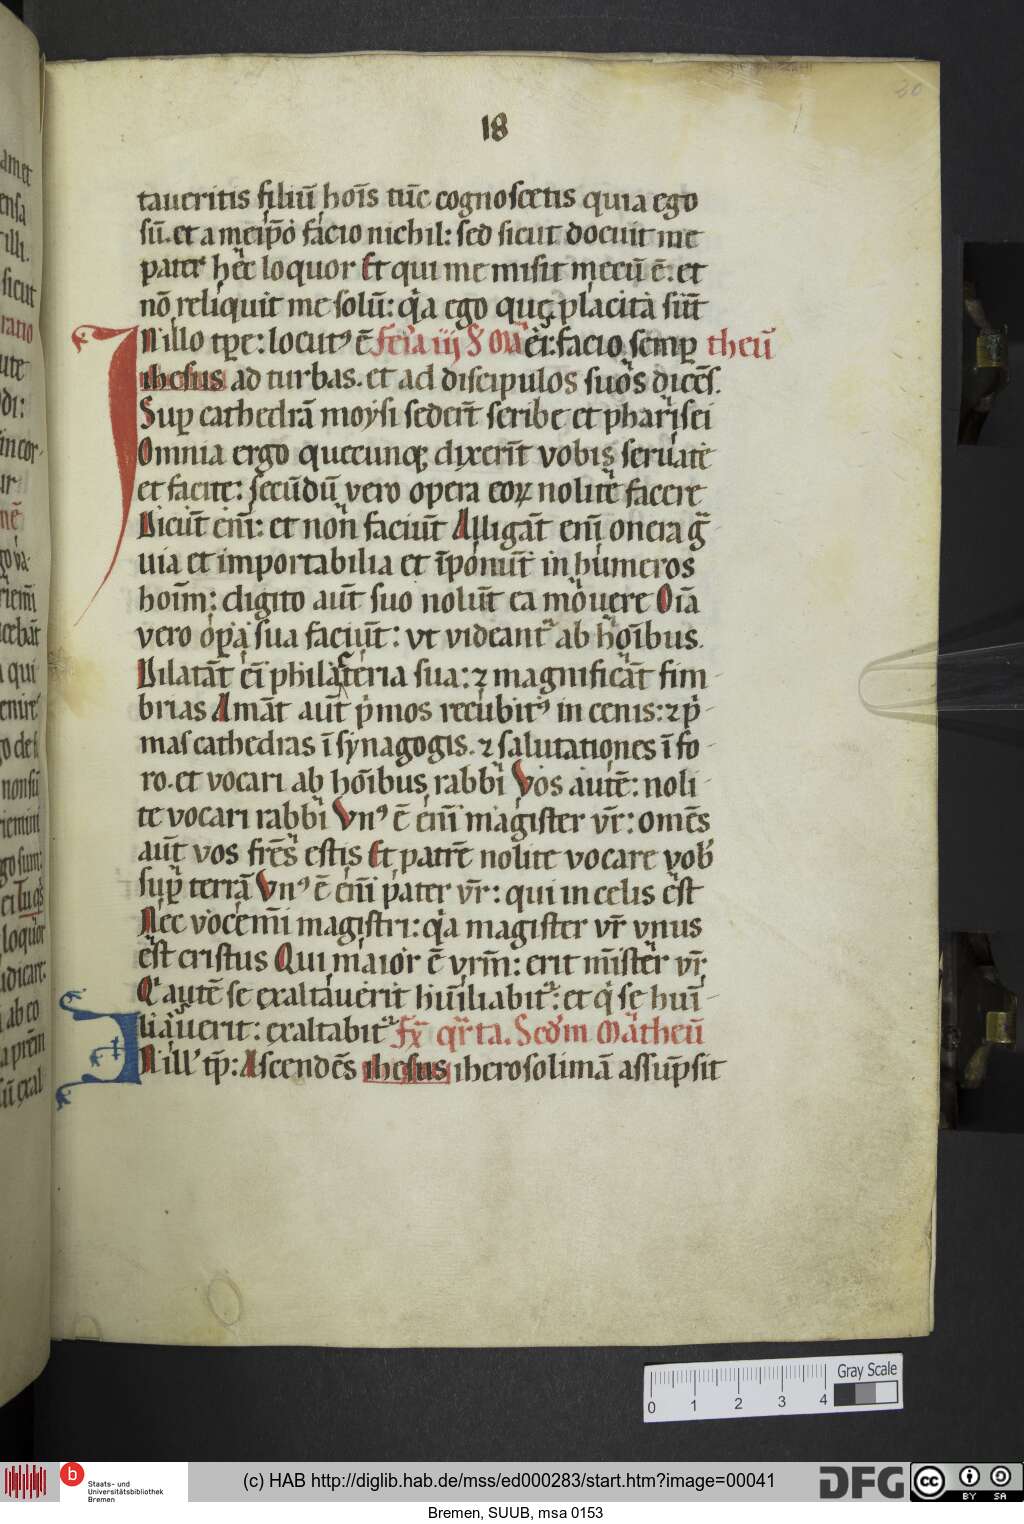 20
18
taueritis filiū hoīs tūc cognoscetis quia ego
sū. et a meip̄o facio nichil: sed sicut docuit me
pater hec loquor Et qui me misit mecū ē. et
nō reliquit me solū: qͥa ego que placita sūt
IN illo tꝑe: locutꝰ ē feria iij S Ma ei: facio semꝑ theū
ihesus ad turbas. et ad discipulos suos dicēs.
Suꝑ cathedrā moysi sederūt scribe et pharisei
Omnia ergo quecunqꝫ dixerīt vobis seruate
et facite: secūdū vero opera eoꝝ nolite facere
Dicūt enī: et non faciūt Alligāt enī onera gͣ
uia et importabilia et īponūt in humeros
hoīm: digito aūt suo nolūt ea mouere Oīa
vero oꝑa sua faciūt: vt videantᷣ ab hoībus.
Dilatāt eī philacteria sua: ⁊ magnificāt fim-
brias Amāt aūt pͥmos recubitꝰ in cenis: ⁊ pͥ-
mas cathedras ī synagogis. ⁊ salutationes ī fo-
ro. et vocari ab hoībus rabbi Vos autē: noli-
te vocari rabbi Vnꝰ ē enī magister vr̄: omēs
aūt vos fres estis Et patrē nolite vocare vob
suꝑ terrā Vnꝰ ē enī pater vr̄: qui in celis est
Nec vocemī magistri: qͥa magister vr̄ vnus
est cristus Qui maior ē vrm̄: erit mīster vr̄
Qͥ autē se exaltauerit hūiliabitᷣ: et qͥ se huī-
liauerit: exaltabitᷣ Fͬ qͬrta. Scdm Matheū
IN ill' tꝑ: Ascendēs ihesus iherosolimā assūpsit
0 1 2 3 4
Gray Scale
b
Staats- und
Universitätsbibliothek
Bremen
(c) HAB http://diglib.hab.de/mss/ed000283/start.htm?image=00041
DFG
cc
BY SA
Bremen, SUUB, msa 0153